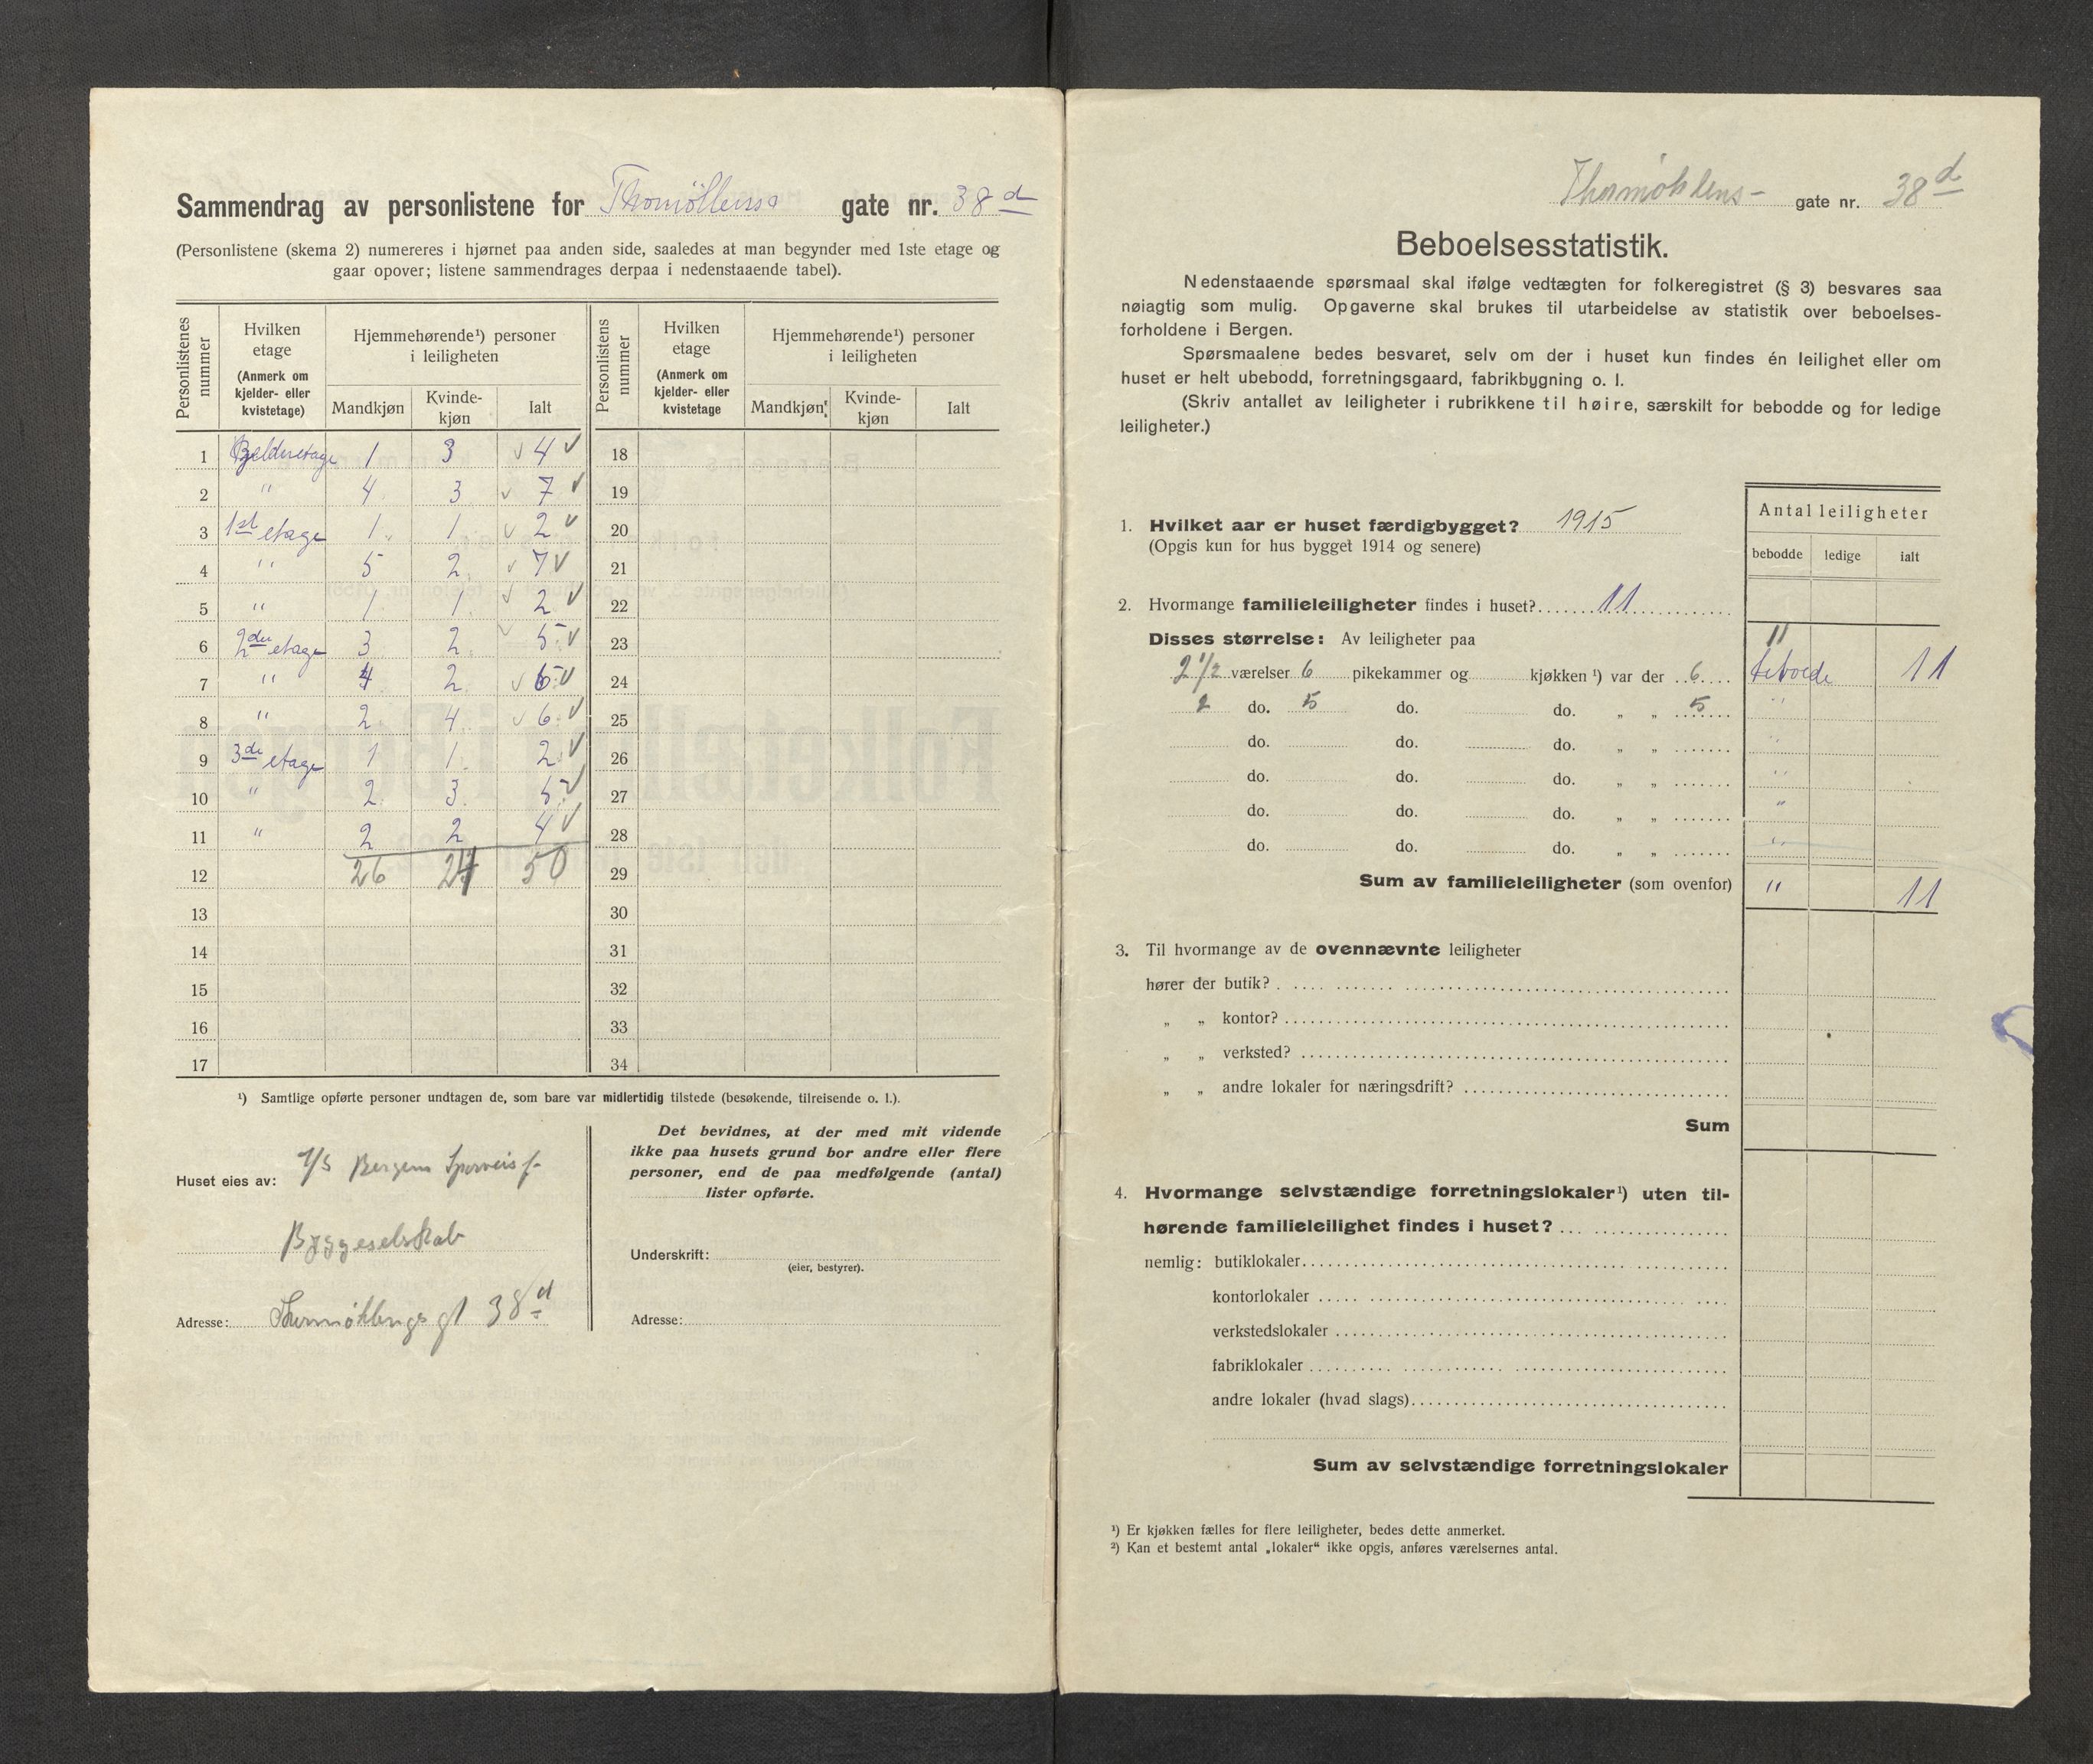 Sammendrag av personlistene for Thormøllens gate nr. 38 d
(Personlistene (skema 2) numereres i hjørnet paa anden side, saaledes at man begynder med 1ste etage og
gaar opover; listene sammendrages derpaa i nedenstaaende tabel).
Personlistenes nummer | Hvilken etage (Anmerk om kjelder- eller kvistetage) | Hjemmehørende¹) personer i leiligheten | Personlistens nummer | Hvilken etage (Anmerk om kjelder- eller kvistetage | Hjemmehørende¹) personer i leiligheten
Mandkjøn | Kvinde-kjøn | Ialt | Mandkjøn | Kvinde-kjøn | Ialt
1 Kjelderetage 1 3 √ 4 √ 18
2 " 4 3 √ 7 √ 19
3 1st etage 1 1 √ 2 √ 20
4 " 5 2 √ 7 √ 21
5 " 1 1 √ 2 √ 22
6 2den etage 3 2 √ 5 √ 23
7 " 4 2 √ 6 √ 24
8 " 2 4 √ 6 √ 25
9 3de etage 1 1 2 √ 26
10 " 2 3 5 √ 27
11 " 2 2 4 √ 28
12 26 24 50 29
13 30
14 31
15 32
16 33
17 34
¹) Samtlige opførte personer undtagen de, som bare var midlertidig tilstede (besøkende, tilreisende o. l.).
Huset eies av: A/S Bergens Sporveis f-
Byggeselskab
Adresse: Thormøhlens gt 38 d
Det bevidnes, at der med mit vidende
ikke paa husets grund bor andre eller flere
personer, end de paa medfølgende (antal)
lister opførte.
Underskrift:
(eier, bestyrer).
Adresse:
Thormøhlens- gate nr. 38 d
Beboelsesstatistik.
Nedenstaaende spørsmaal skal ifølge vedtægten for folkeregistret (§ 3) besvares saa
nøiagtig som mulig. Opgaverne skal brukes til utarbeidelse av statistik over beboelses-
forholdene i Bergen.
Spørsmaalene bedes besvaret, selv om der i huset kun findes én leilighet eller om
huset er helt ubebodd, forretningsgaard, fabrikbygning o. l.
(Skriv antallet av leiligheter i rubrikkene til høire, særskilt for bebodde og for ledige
leiligheter.)
Antal leiligheter
bebodde | ledige | ialt
1. Hvilket aar er huset færdigbygget? 1915
(Opgis kun for hus bygget 1914 og senere)
2. Hvormange familieleiligheter findes i huset? 11
Disses størrelse: Av leiligheter paa 11
2 1/2 værelser 6 pikekammer og kjøkken ¹) var der 6 beboede 11
2 do. 5 do. do. „ „ 5 "
do. do. do. „ „ "
do. do. do. „ „ "
do. do. do. „ „ "
do. do. do. „ „ "
Sum av familieleiligheter (som ovenfor) " 11
3. Til hvormange av de ovennævnte leiligheter
hører der butik?
„ „ kontor?
„ „ verksted?
„ „ andre lokaler for næringsdrift?
Sum
4. Hvormange selvstændige forretningslokaler¹) uten til-
hørende familieleilighet findes i huset?
nemlig: butiklokaler
kontorlokaler
verkstedslokaler
fabriklokaler
andre lokaler (hvad slags)
Sum av selvstændige forretningslokaler
¹) Er kjøkken fælles for flere leiligheter, bedes dette anmerket.
²) Kan et bestemt antal „lokaler“ ikke opgis, anføres værelsernes antal.